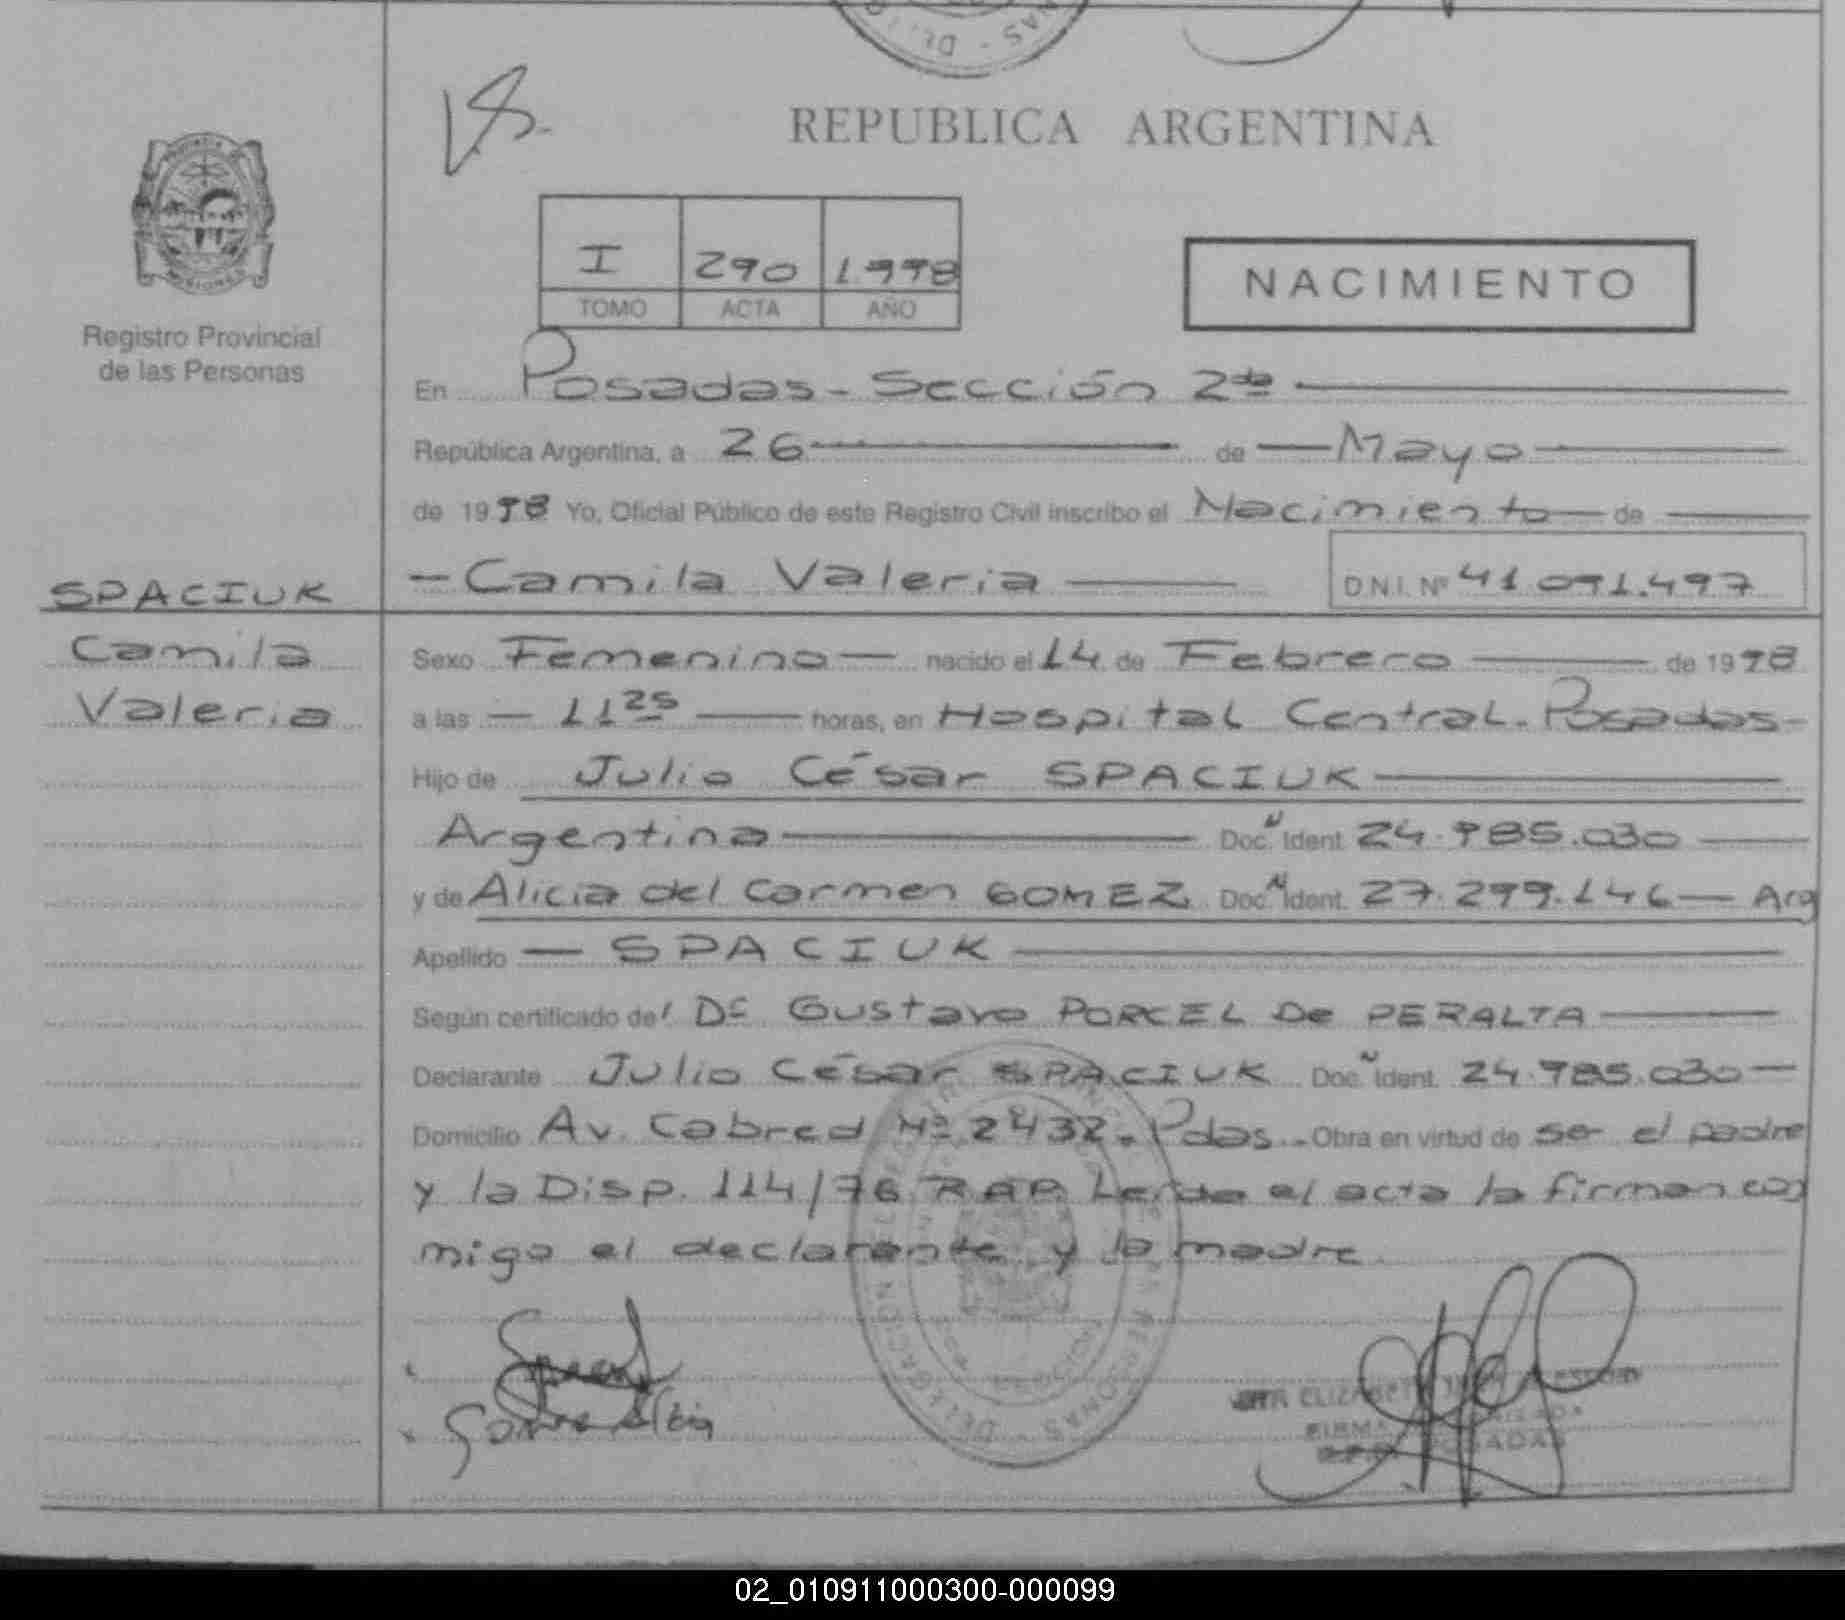 REPUBLICA ARGENTINA
I 290 1.998
TOMO ACTA AÑO
NACIMIENTO
Registro Provincial
de las Personas
En Posadas - Sección 2da
República Argentina, a 26 de Mayo
de 1998 Yo, Oficial Público de este Registro Civil inscribo el Nacimiento de
Camila Valeria D.N.I. Nº 41.091.497
SPACIUK
Camila
Valeria
Sexo Femenino nacido el 14 de Febrero de 1998
a las 11 25 horas, en Hospital Central - Posadas -
Hijo de Julio César SPACIUK
Argentina Doc. Ident. 24.985.030
y de Alicia del Carmen GOMEZ Doc. Ident. 27.299.146 - Arg
Apellido SPACIUK
Según certificado del Dr Gustavo PORCEL De PERALTA
Declarante Julio César SPACIUK Doc. Ident. 24.985.030
Domicilio Av. Cabred Nº 2432 - Pdas. Obra en virtud de ser el padre
y la Disp. 114/76 RPP Leida el acta la firman con
migo el declarante y la madre
02_010911000300-000099